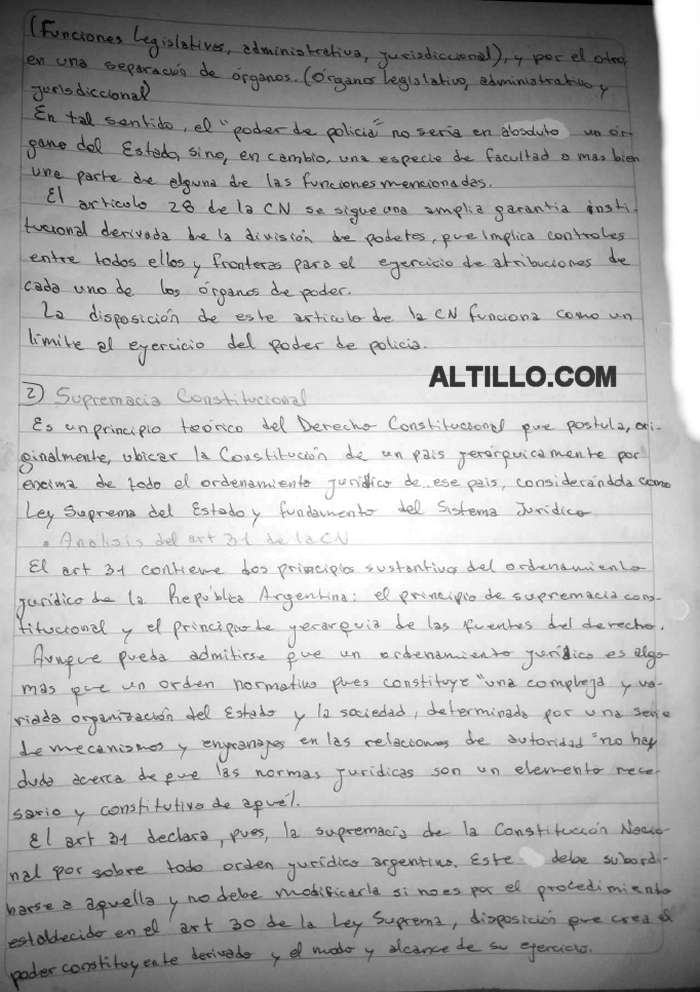 (Funciones legislativas, administrativa, jurisdiccional), y por el otro,
en una separación de órganos. (Órganos legislativo, administrativo y
jurisdiccional
En tal sentido, el "poder de policia" no seria en absoluto un ór-
gano del Estado, sino, en cambio, una especie de facultad o mas bien
una parte de alguna de las funciones mencionadas.
El articulo 28 de la CN se sigue una amplia garantia insti-
tucional derivada de la división de podetes, que implica controles
entre todos ellos y fronteras para el ejercicio de atribuciones de
cada uno de los órganos de poder.
La disposición de este articulo de la CN funciona como un
límite al ejercicio del poder de policia.
ALTILLO.COM
2) Supremacia Constitucional
Es un principio teórico del Derecho Constitucional que postula, ori-
ginalmente, ubicar la Constitución de un pais jerárquicamente por
encima de todo el ordenamiento jurídico de ese pais, considerándola como
Ley Suprema del Estado y fundamento del Sistema Juridico
• Analisis del art 31 de la CN
El art 31 contiene dos principios sustantivos del ordenamiento
jurídico de la República Argentina: el principio de supremacia cons-
titucional y el principio de jerarquia de las fuentes del derecho.
Aunque pueda admitirse que un ordenamiento jurídico es algo
mas que un orden normativo pues constituye "una compleja y va-
riada organización del Estado y la sociedad, determinada por una serie
de mecanismos y engranajes en las relaciones de autoridad" no hay
duda acerca de que las normas jurídicas son un elemento nece-
sario y constitutivo de aquél.
El art 31 declara, pues, la supremacia de la Constitución Nacio-
nal por sobre todo orden jurídico argentino. Este debe subordi-
narse a aquella y no debe modificarla si no es por el procedimiento
establecido en el art 30 de la Ley Suprema, disposición que crea el
poder constituyente derivado y el modo y alcance de su ejercicio.